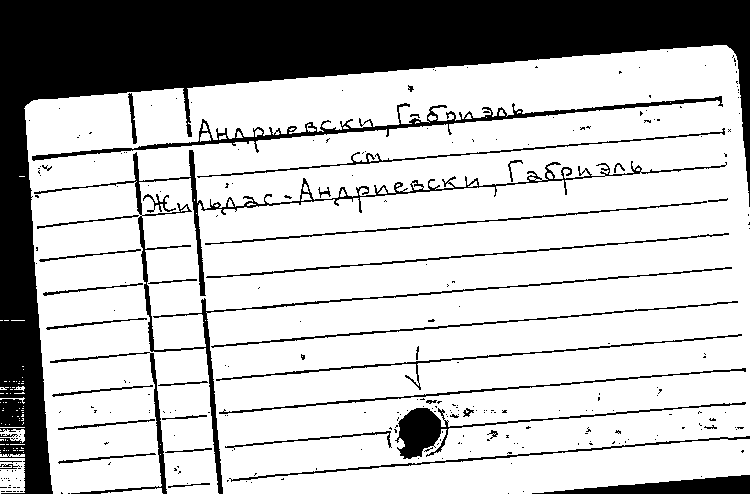 Андриевски, Габриэль
см.
Жильдас-Андриевски, Габриэль.